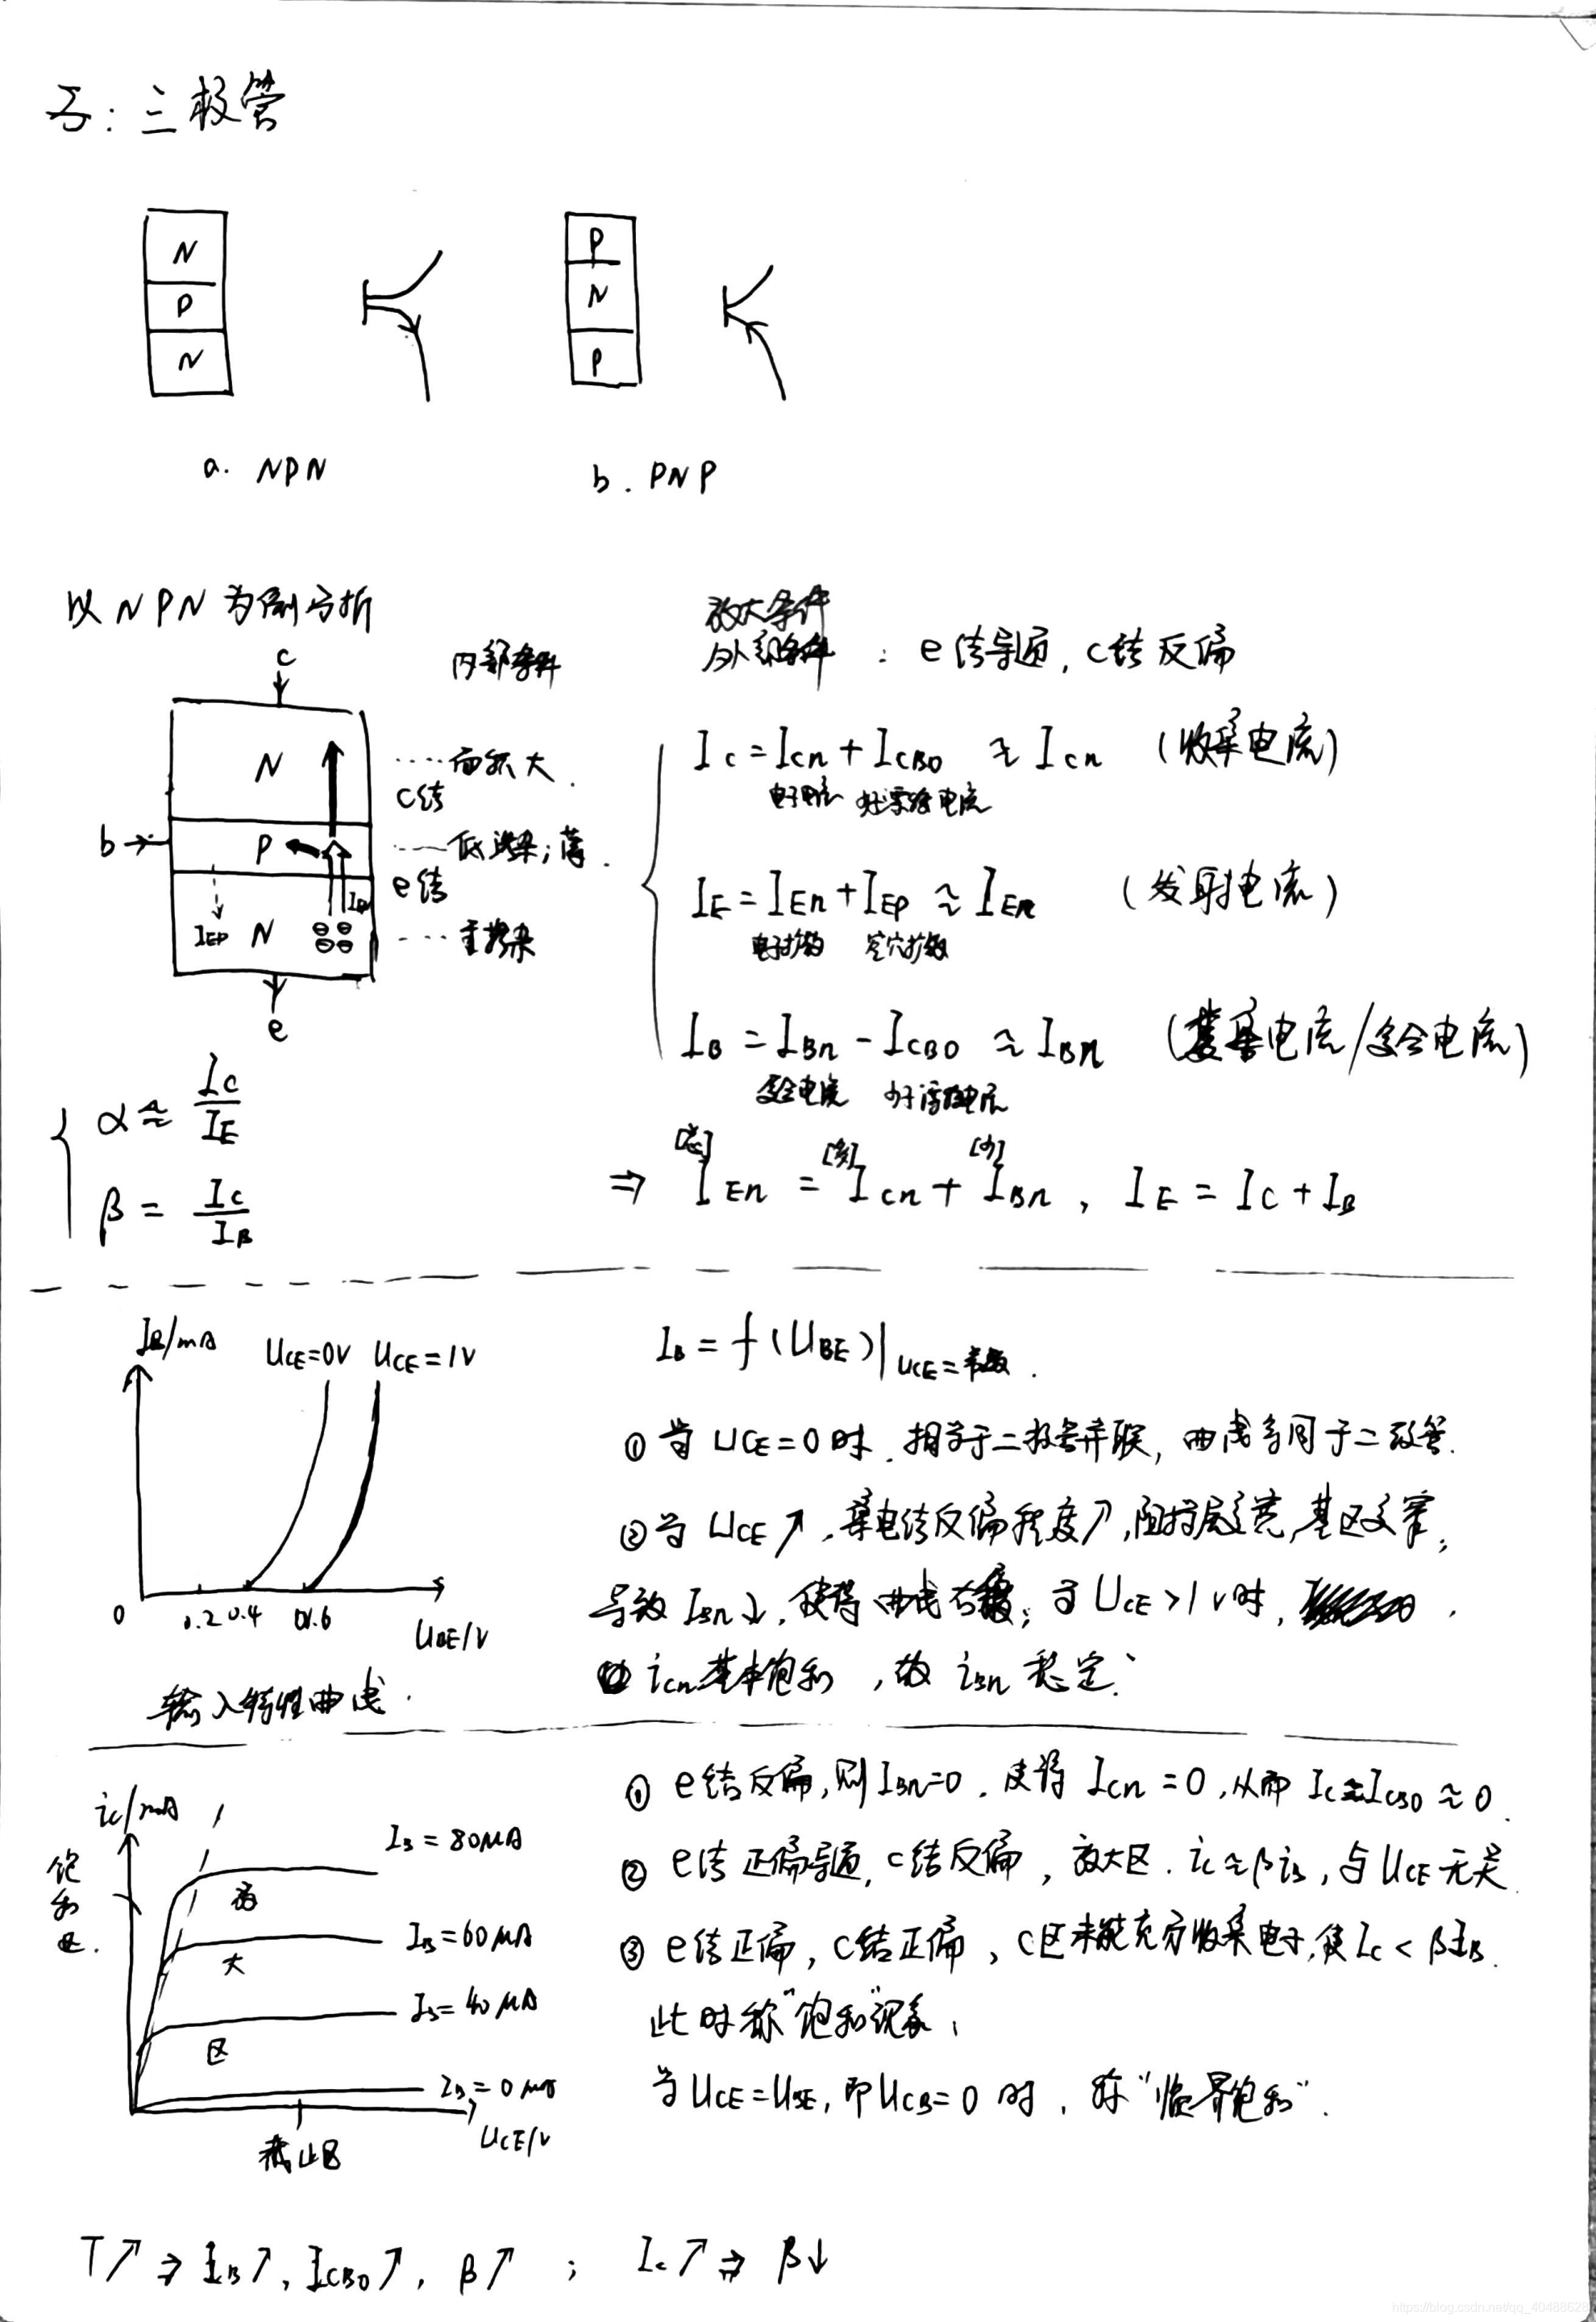 三极管
N
P
N
P
N
P
a. NPN
b. PNP
以NPN为例分析
放大条件
内部条件
外部条件 : e结导通, c结反偏
c
N
····面积大
c结
b
P
····低掺杂;薄
e结
IEP N
····重掺杂
e
Ic = Icn + ICBO ≈ Icn (收集电流)
电子电流 少子漂移电流
IE = IEn + IEP ≈ IEn (发射电流)
电子扩散 空穴扩散
IB = IBn - ICBO ≈ IBn (基极电流/复合电流)
复合电流 少子漂移电流
α ≈ Ic/IE
β = Ic/IB
[总] [多] [少]
⇒ IEn = Icn + IBn, IE = Ic + IB
IB/mA
UCE=0V UCE=1V
0 0.2 0.4 0.6
UBE/V
输入特性曲线.
IB = f(UBE)|UCE=常数.
① 当UCE=0时. 相当于二极管并联, 曲线等同于二极管.
② 当UCE↗, 集电结反偏程度↗, 阻挡层变宽, 基区变窄,
导致IBn↓, 使得曲线右移; 当UCE>1V时,
icn基本饱和, 故iBn稳定.
ic/mA
饱和区.
IB = 80μA
放
IB=60μA
大
IB=40μA
区
IB=0μA
UCE/V
截止区
① e结反偏, 则IBn=0. 使得Icn=0, 从而Ic≈ICBO≈0.
② e结正偏导通, c结反偏, 放大区. ic≈βiB, 与UCE无关.
③ e结正偏, c结正偏, c区未能充分收集电子, 使Ic<βIB.
此时称"饱和"现象,
当UCE=UBE, 即UCB=0时, 称"临界饱和".
T↗ ⇒ IB↗, ICBO↗, β↗ ; Ic↗ ⇒ β↓
https://blog.csdn.net/qq_40488628